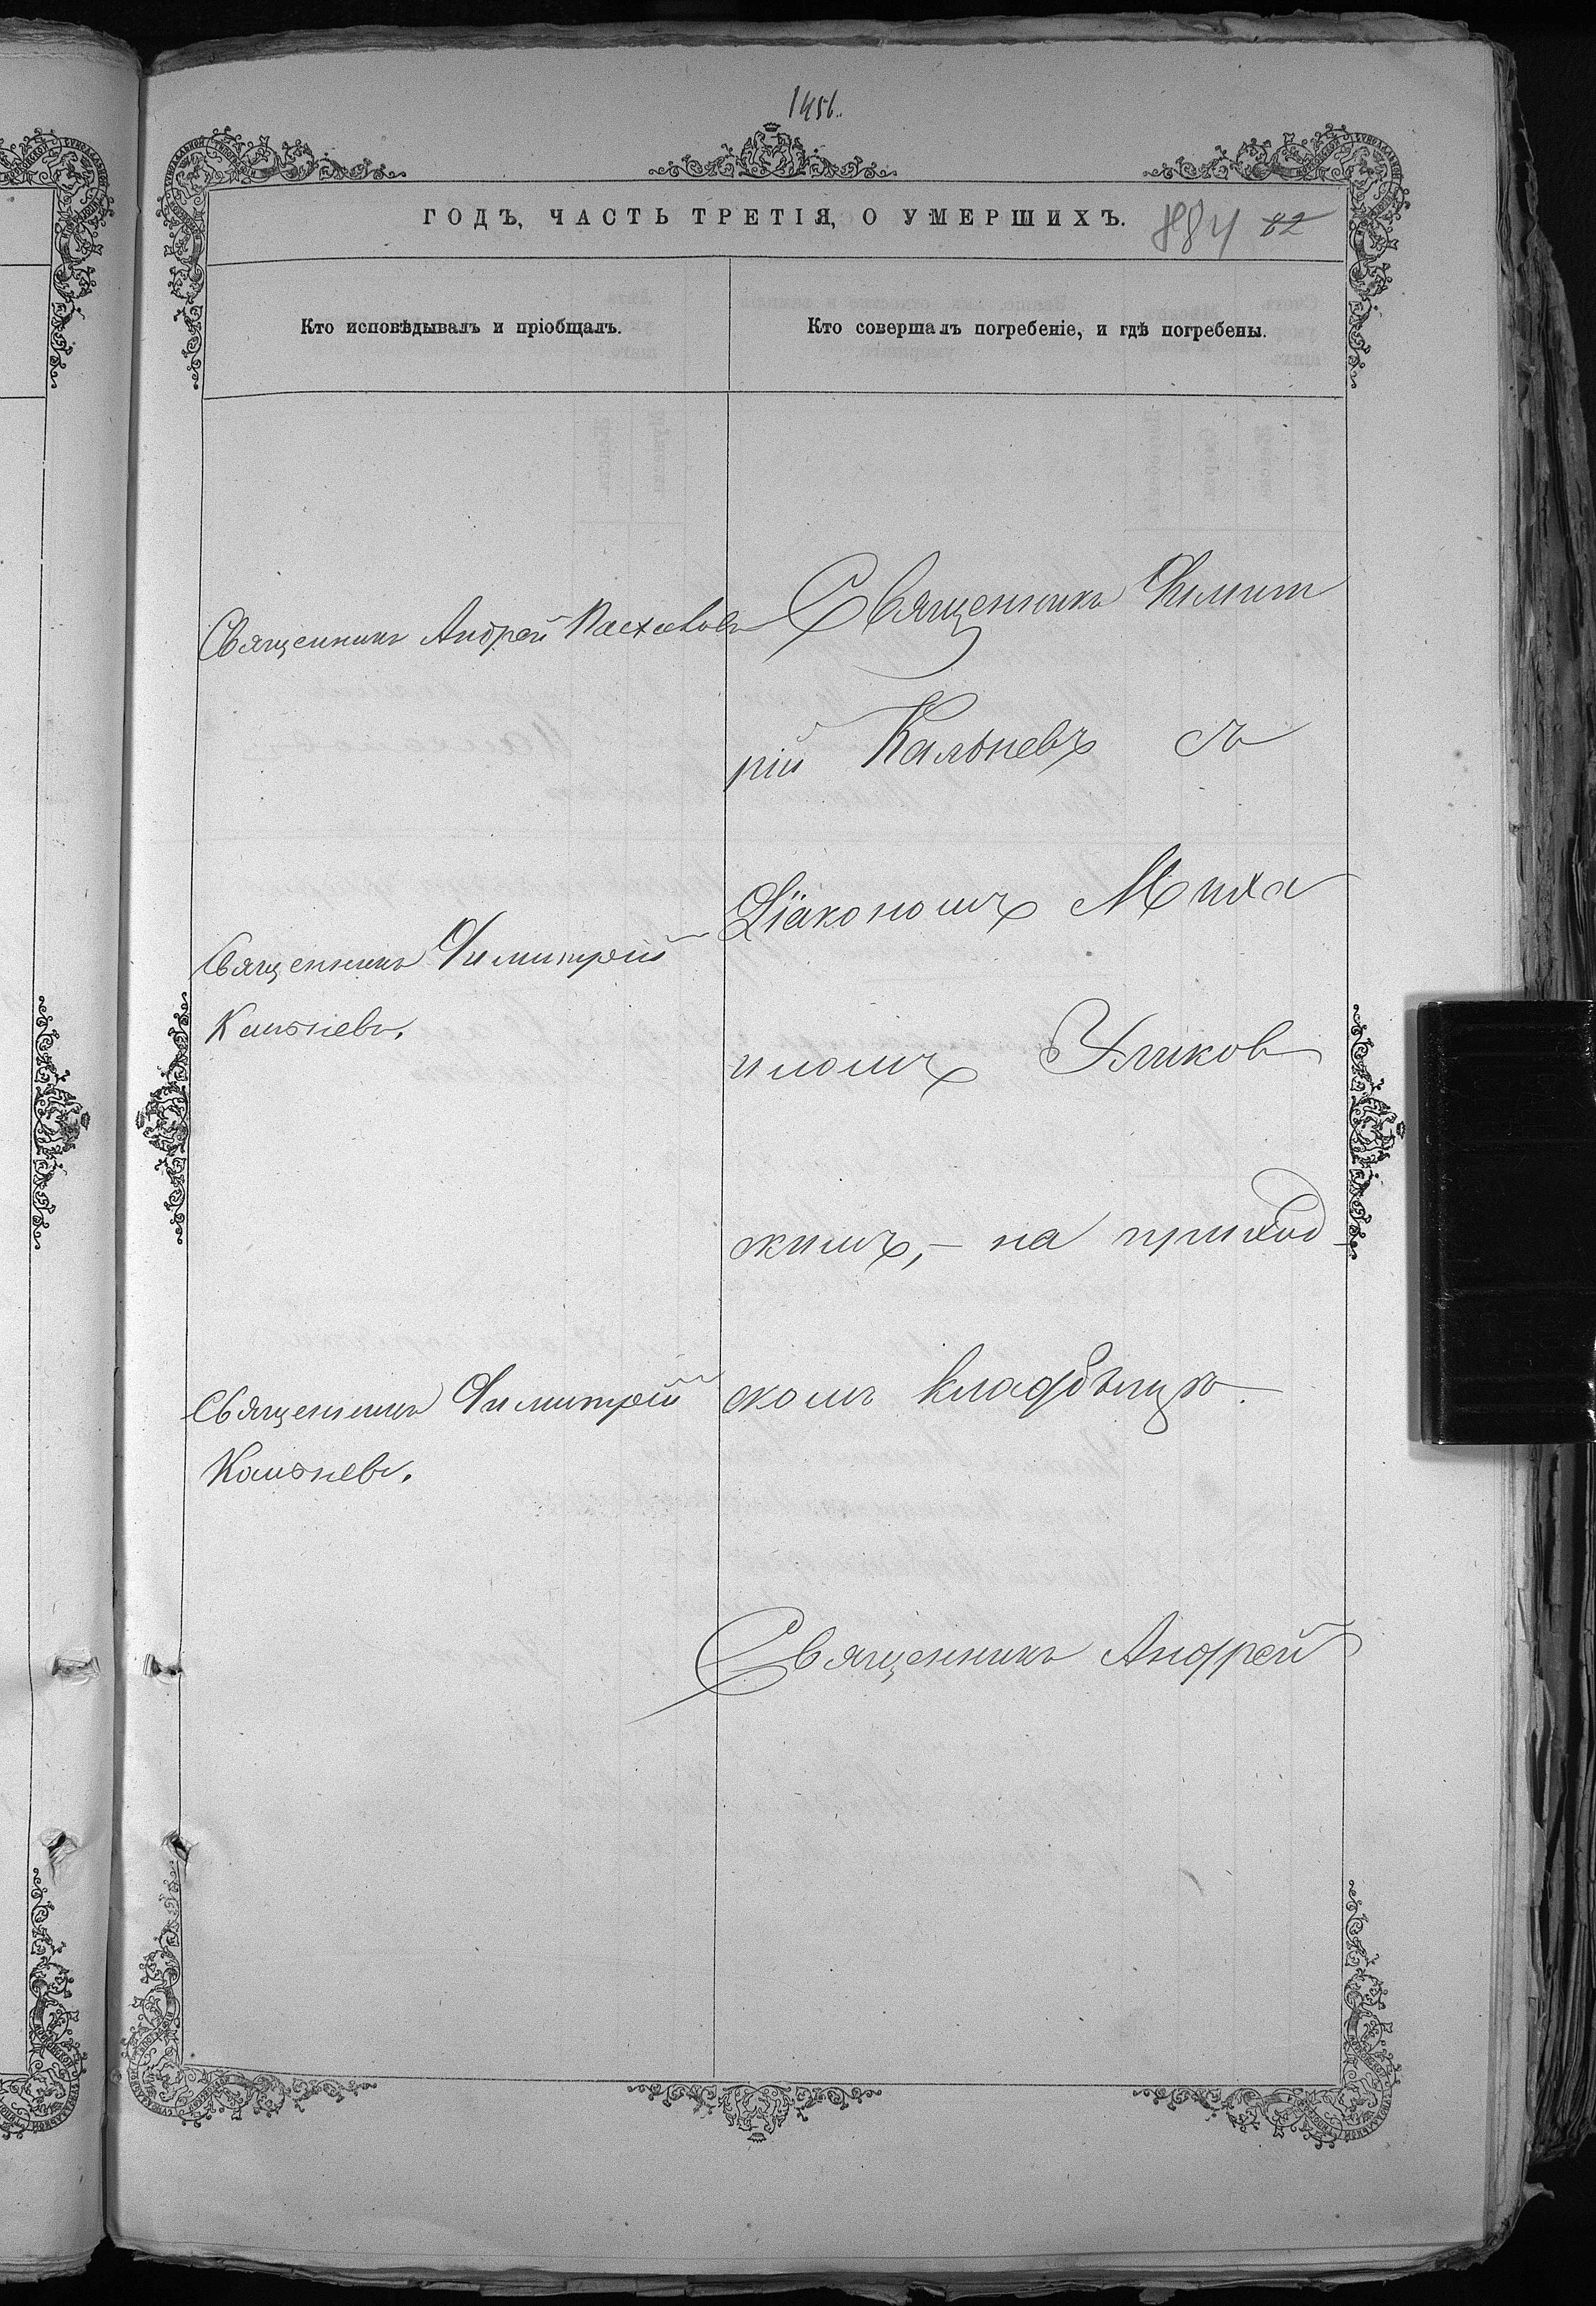 1456.
ГОДЪ, ЧАСТЬ ТРЕТІЯ, О УМЕРШИХЪ.
884 82
Кто исповѣдывалъ и пріобщалъ.
Кто совершалъ погребеніе, и гдѣ погребены.
Священникъ Андрей Пасхаловъ
Священникъ Димитрій
Кальневъ.
Священникъ Димитрій
Кальневъ.
Священникъ Димит
рій Кальневъ съ
Діакономъ Миха
иломъ Уликов
скимъ, — на приход
скомъ кладбищѣ.
Священникъ Андрей